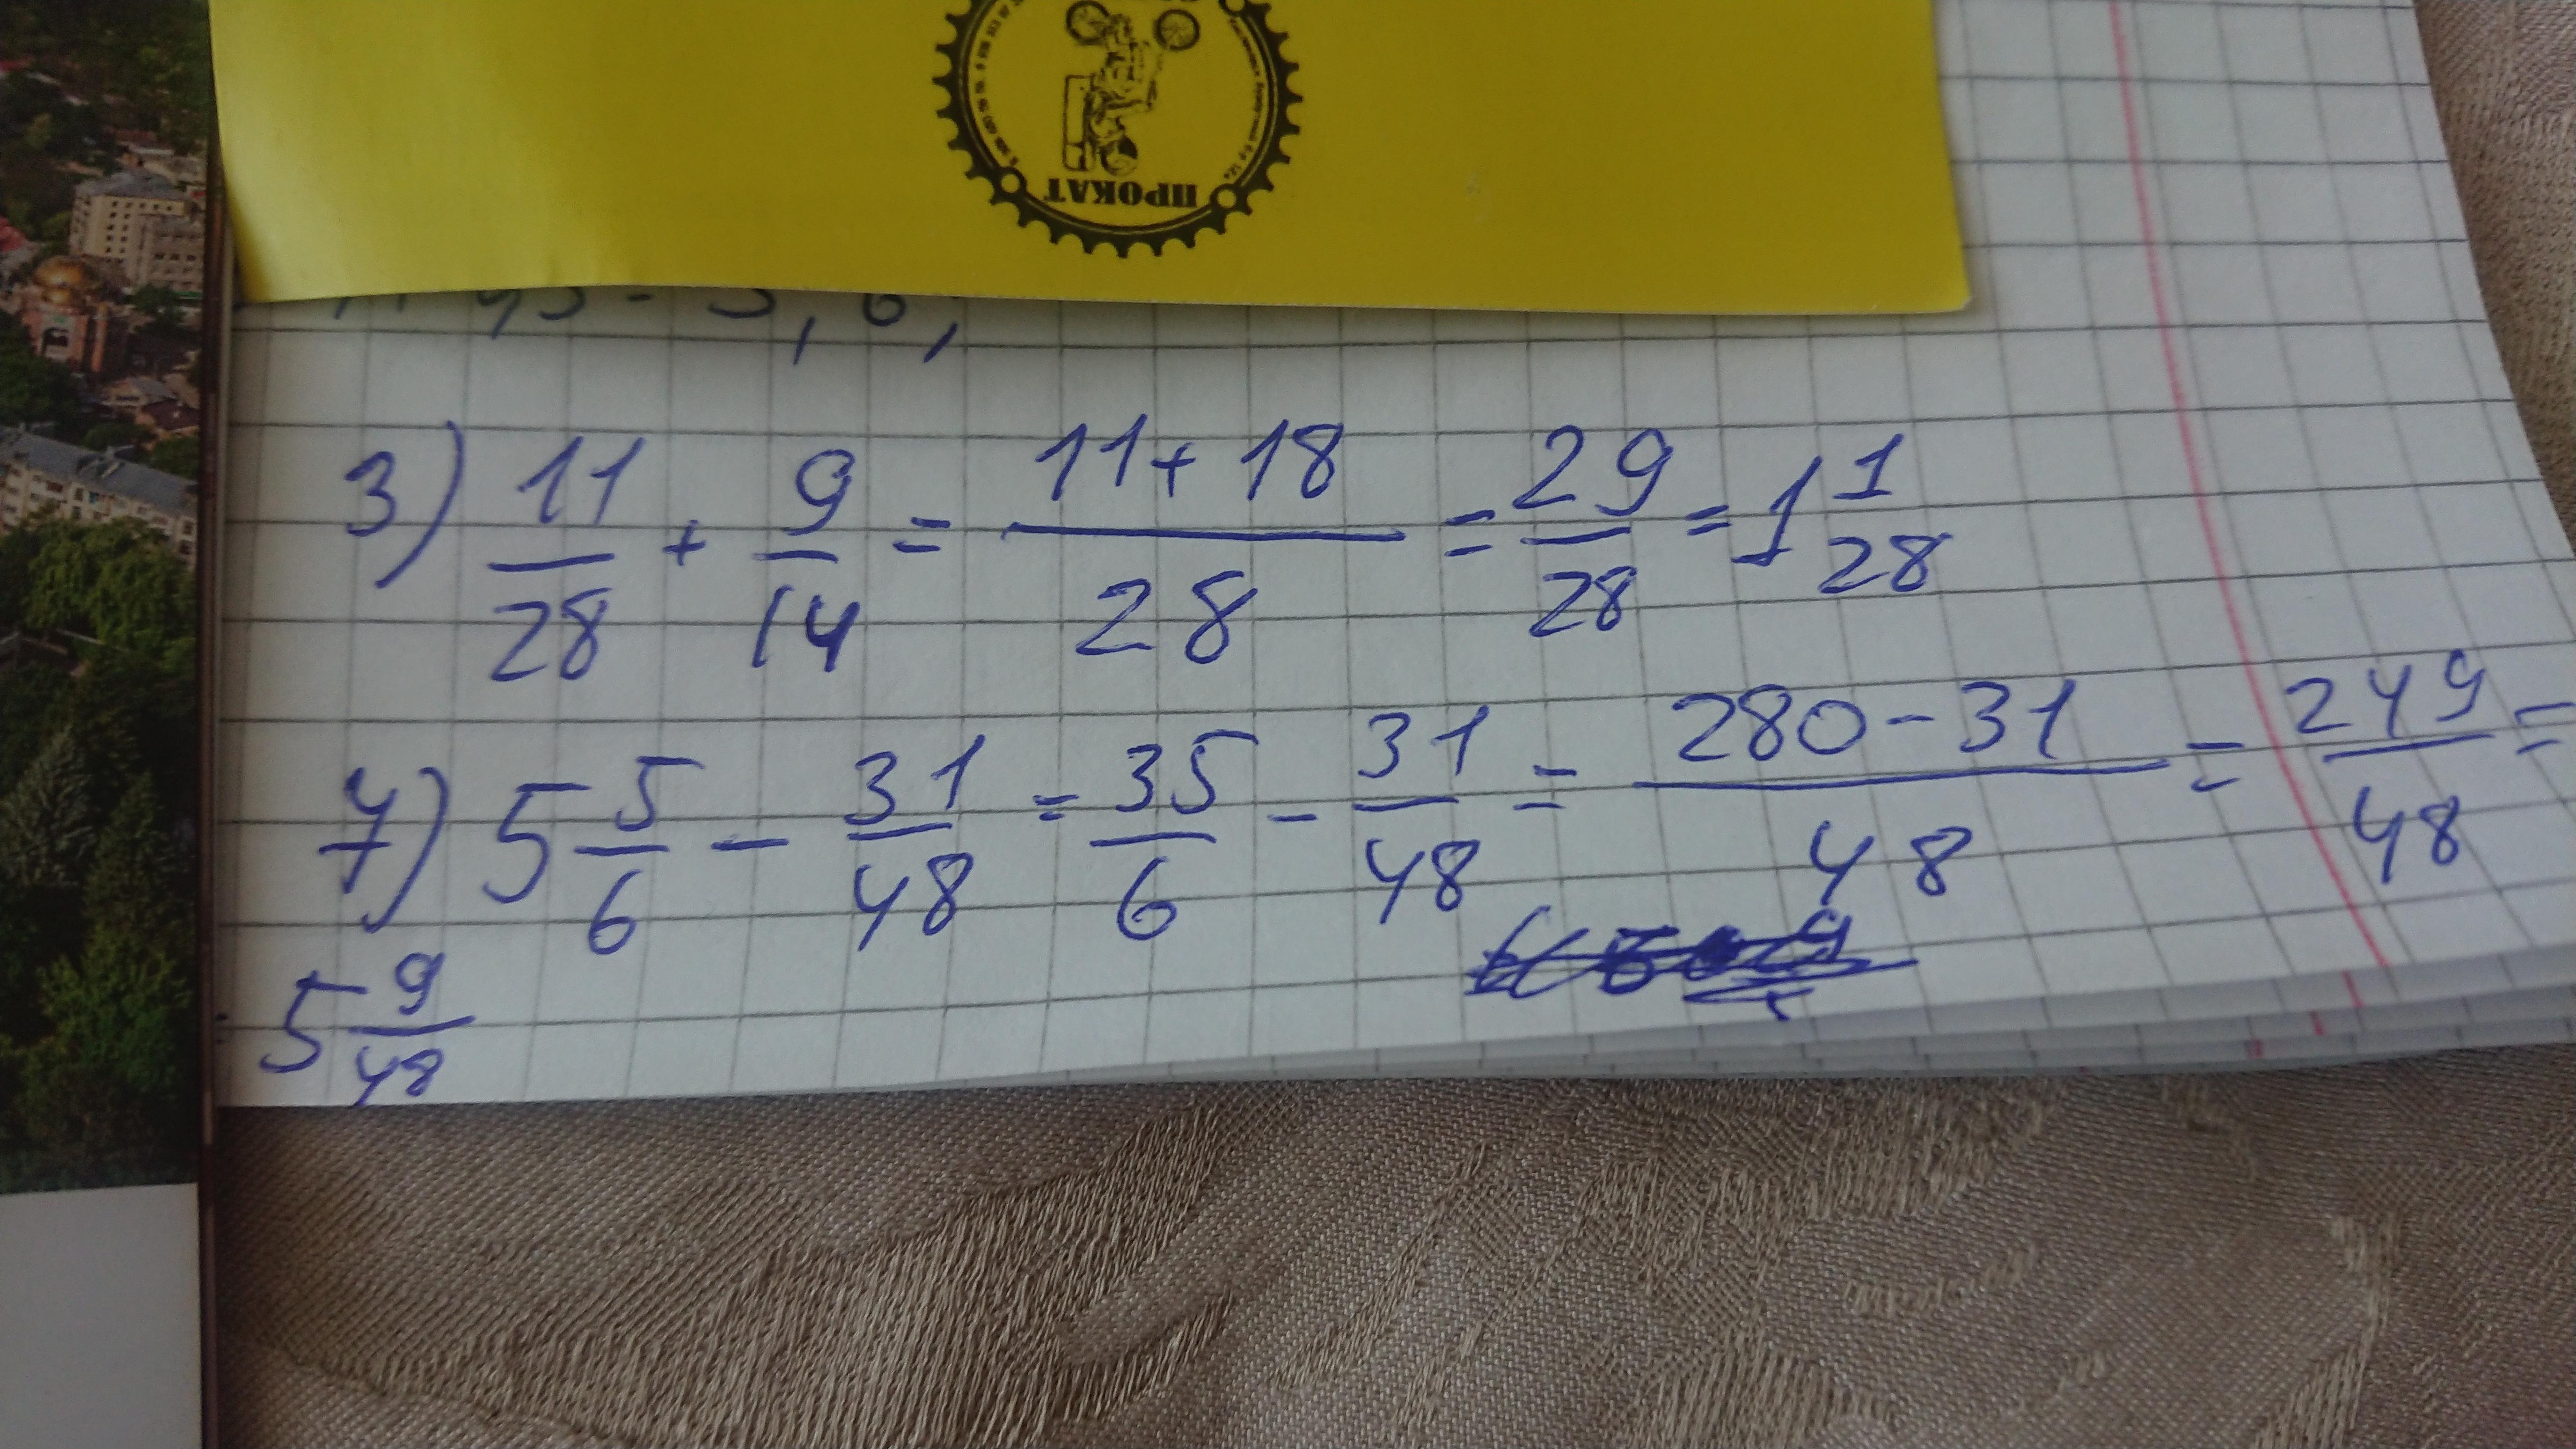 ПРОКАТ
3) 11/28 + 9/14 = 11+18/28 = 29/28 = 1 1/28
7) 5 5/6 - 31/48 = 35/6 - 31/48 = 280-31/48 = 249/48 =
5 9/48